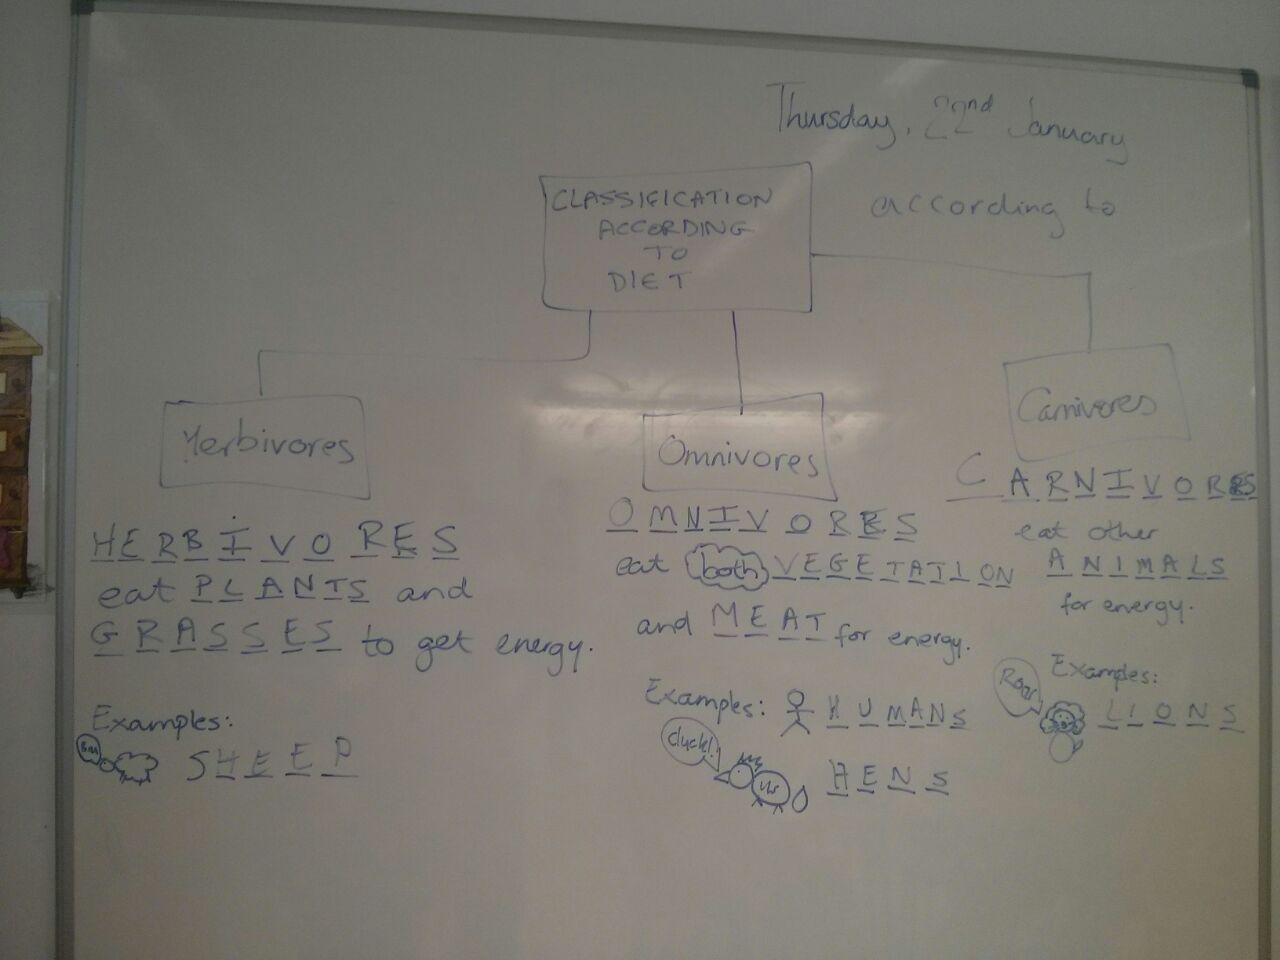 Thursday, 22nd January
according to
CLASSIFICATION
ACCORDING
TO
DIET
Herbivores
Omnivores
Carnivores
HERBIVORES
eat PLANTS and
GRASSES to get energy.
Examples:
Baa
SHEEP
OMNIVORES
eat both VEGETATION
and MEAT for energy.
Examples: HUMANS
cluck!
HENS
CARNIVORES
eat other
ANIMALS
for energy.
Examples:
Roar
LIONS